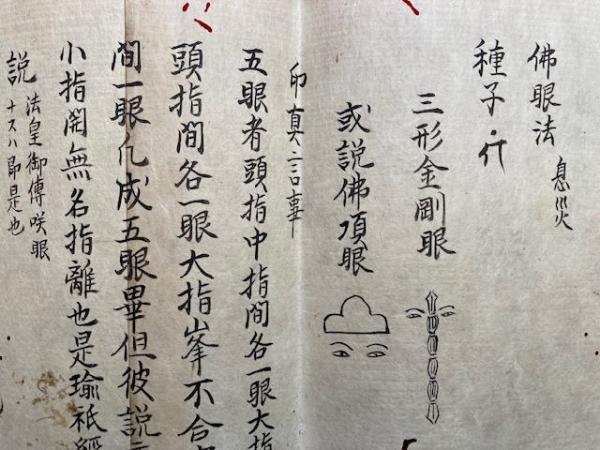 佛眼法 息災
種子
三形金剛眼
或説佛頂眼
印真言事
五眼者頭指中指間各一眼大指
頭指間各一眼大指峯不合
間一眼凡成五眼畢但彼説
小指開無名指離也是瑜祇經
説 法皇御傳咲眼
ナスハ即是也